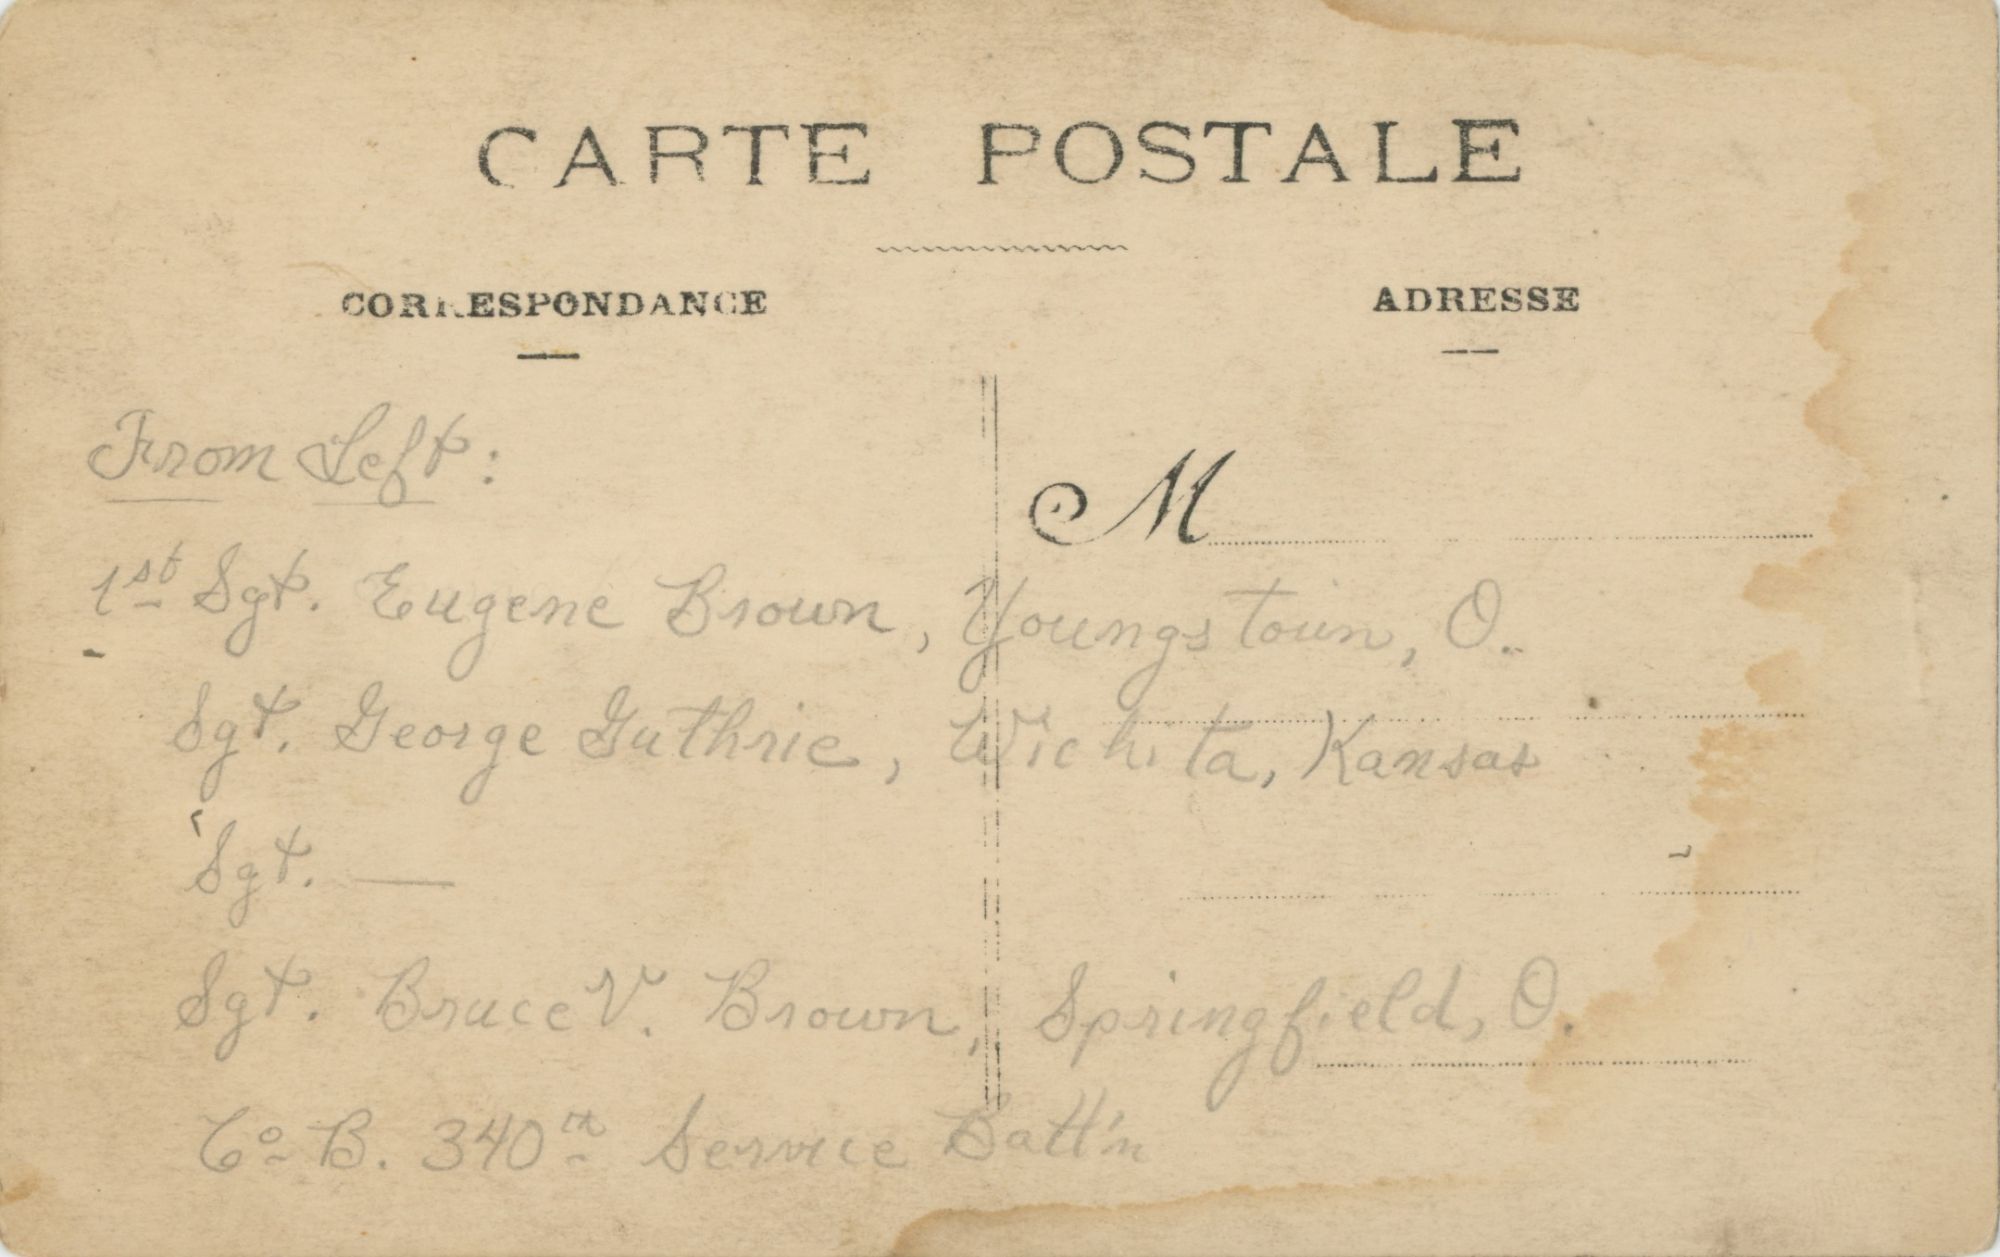 CARTE POSTALE
CORRESPONDANCE
ADRESSE
From Left:
M
1st Sgt. Eugene Brown, Youngstown, O.
Sgt. George Guthrie, Wichita, Kansas
Sgt. —
Sgt. Bruce V. Brown, Springfield, O.
Co B. 340th Service Batt'n